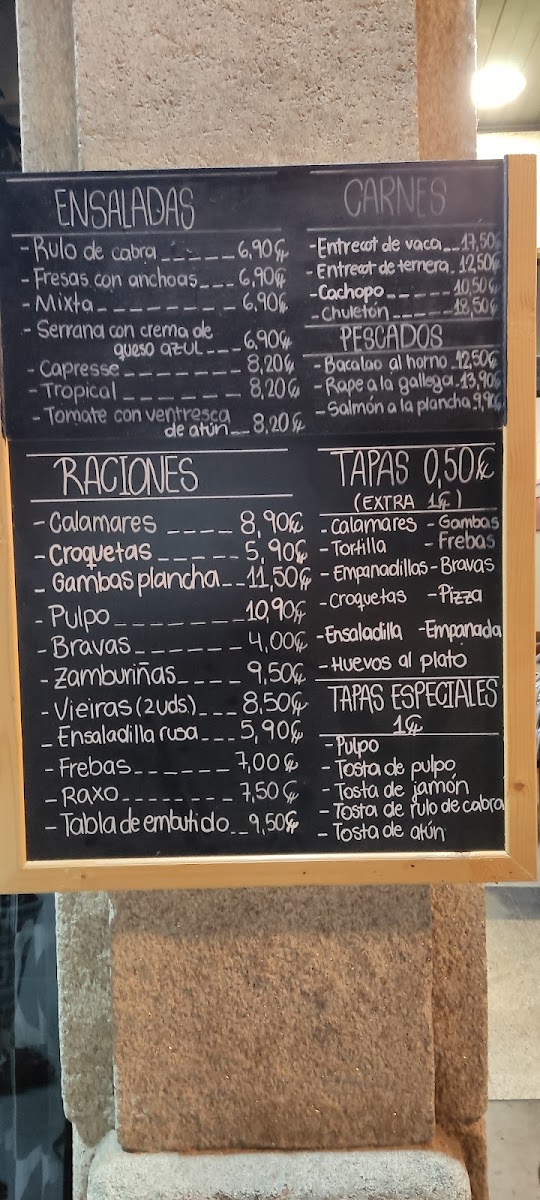 ENSALADAS
- Rulo de cabra ______ 6,90€
- Fresas con anchoas___ 6,90€
- Mixta_________ 6,90€
- Serrana con crema de
queso azul ___ 6,90€
- Capresse _______ 8,20€
- Tropical _______ 8,20€
- Tomate con ventresca
de atún__ 8,20€
CARNES
- Entrecot de vaca__17,50€
- Entrecot de ternera_12,50€
- Cachopo _____ 10,50€
- Chuletón_____18,50€
PESCADOS
- Bacalao al horno_12,50€
- Rape a la gallega_13,90€
- Salmón a la plancha_9,90€
RACIONES
- Calamares ____ 8,90€
- Croquetas _____ 5,90€
- Gambas plancha__11,50€
- Pulpo________10,90€
- Bravas_______ 4,00€
- Zamburiñas____ 9,50€
- Vieiras (2uds)___ 8,50€
- Ensaladilla rusa___ 5,90€
- Frebas_______ 7,00€
- Raxo________ 7,50€
- Tabla de embutido__9,50€
TAPAS 0,50€
(EXTRA 1€)
- Calamares - Gambas
- Tortilla - Frebas
- Empanadillas - Bravas
- Croquetas - Pizza
- Ensaladilla - Empanada
- Huevos al plato
TAPAS ESPECIALES
1€
- Pulpo
- Tosta de pulpo
- Tosta de jamón
- Tosta de rulo de cabra
- Tosta de atún